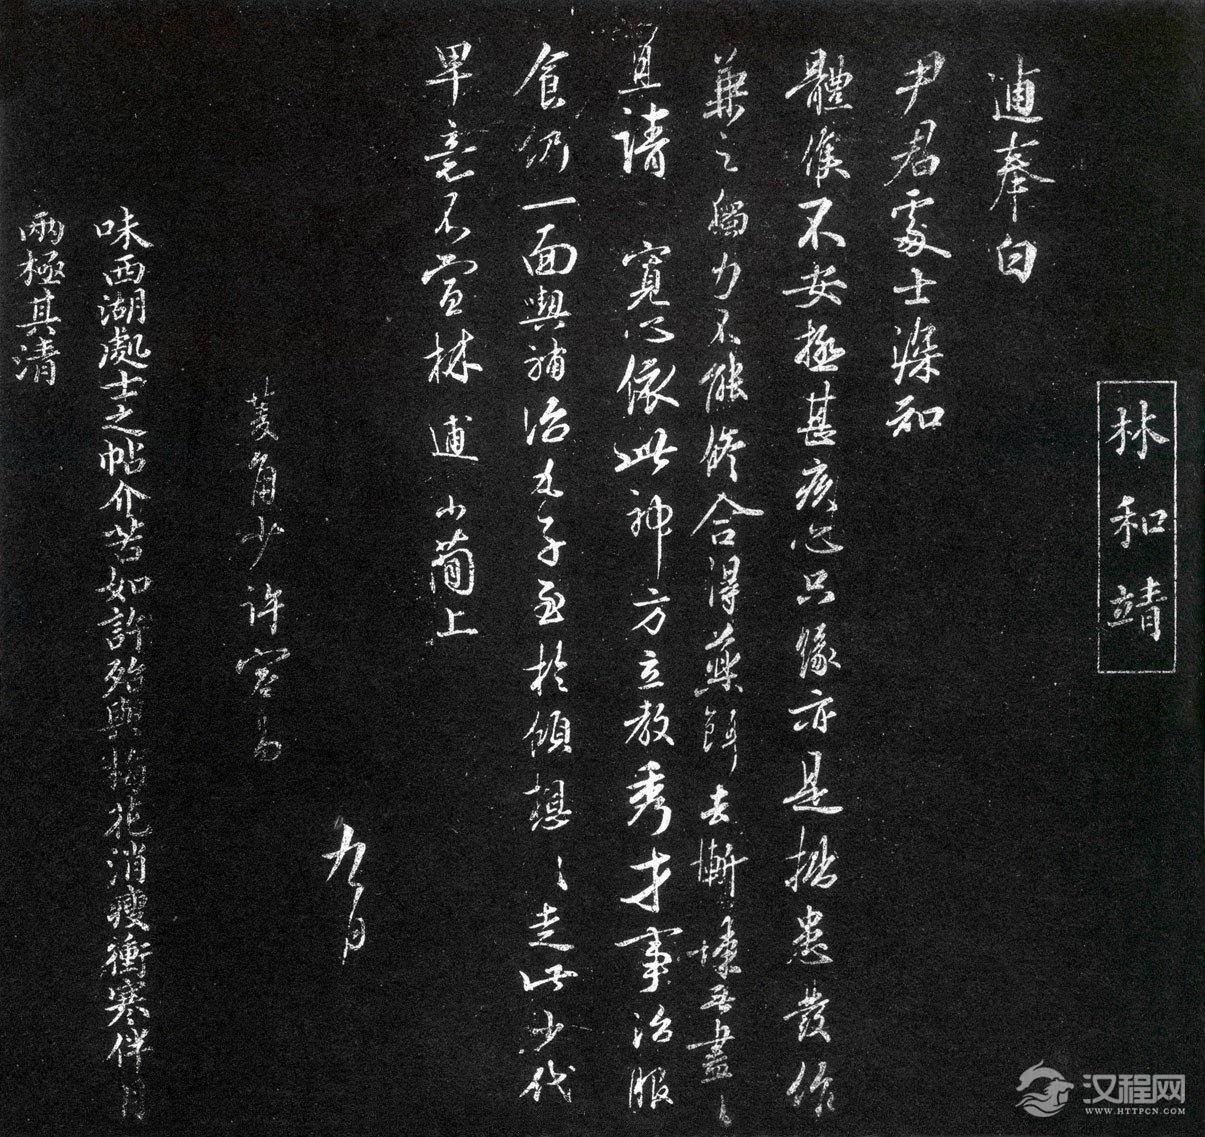 林和靖
逋奉白
尹君處士深知
體候不安極甚疾心只緣亦是拙患發作
兼之 力不能修合得藥餌去慚悚無盡〻
且請 寬心依此神方立教秀才事治服
食仍一面與補治丸子至於傾想〻走此少代
早 不宣林 逋 小簡上
九月
菱角少許容易
味西湖處士之帖介苦如許殆與梅花消瘦衝寒伴月
兩極其清
汉程网
WWW.HTTPCN.COM